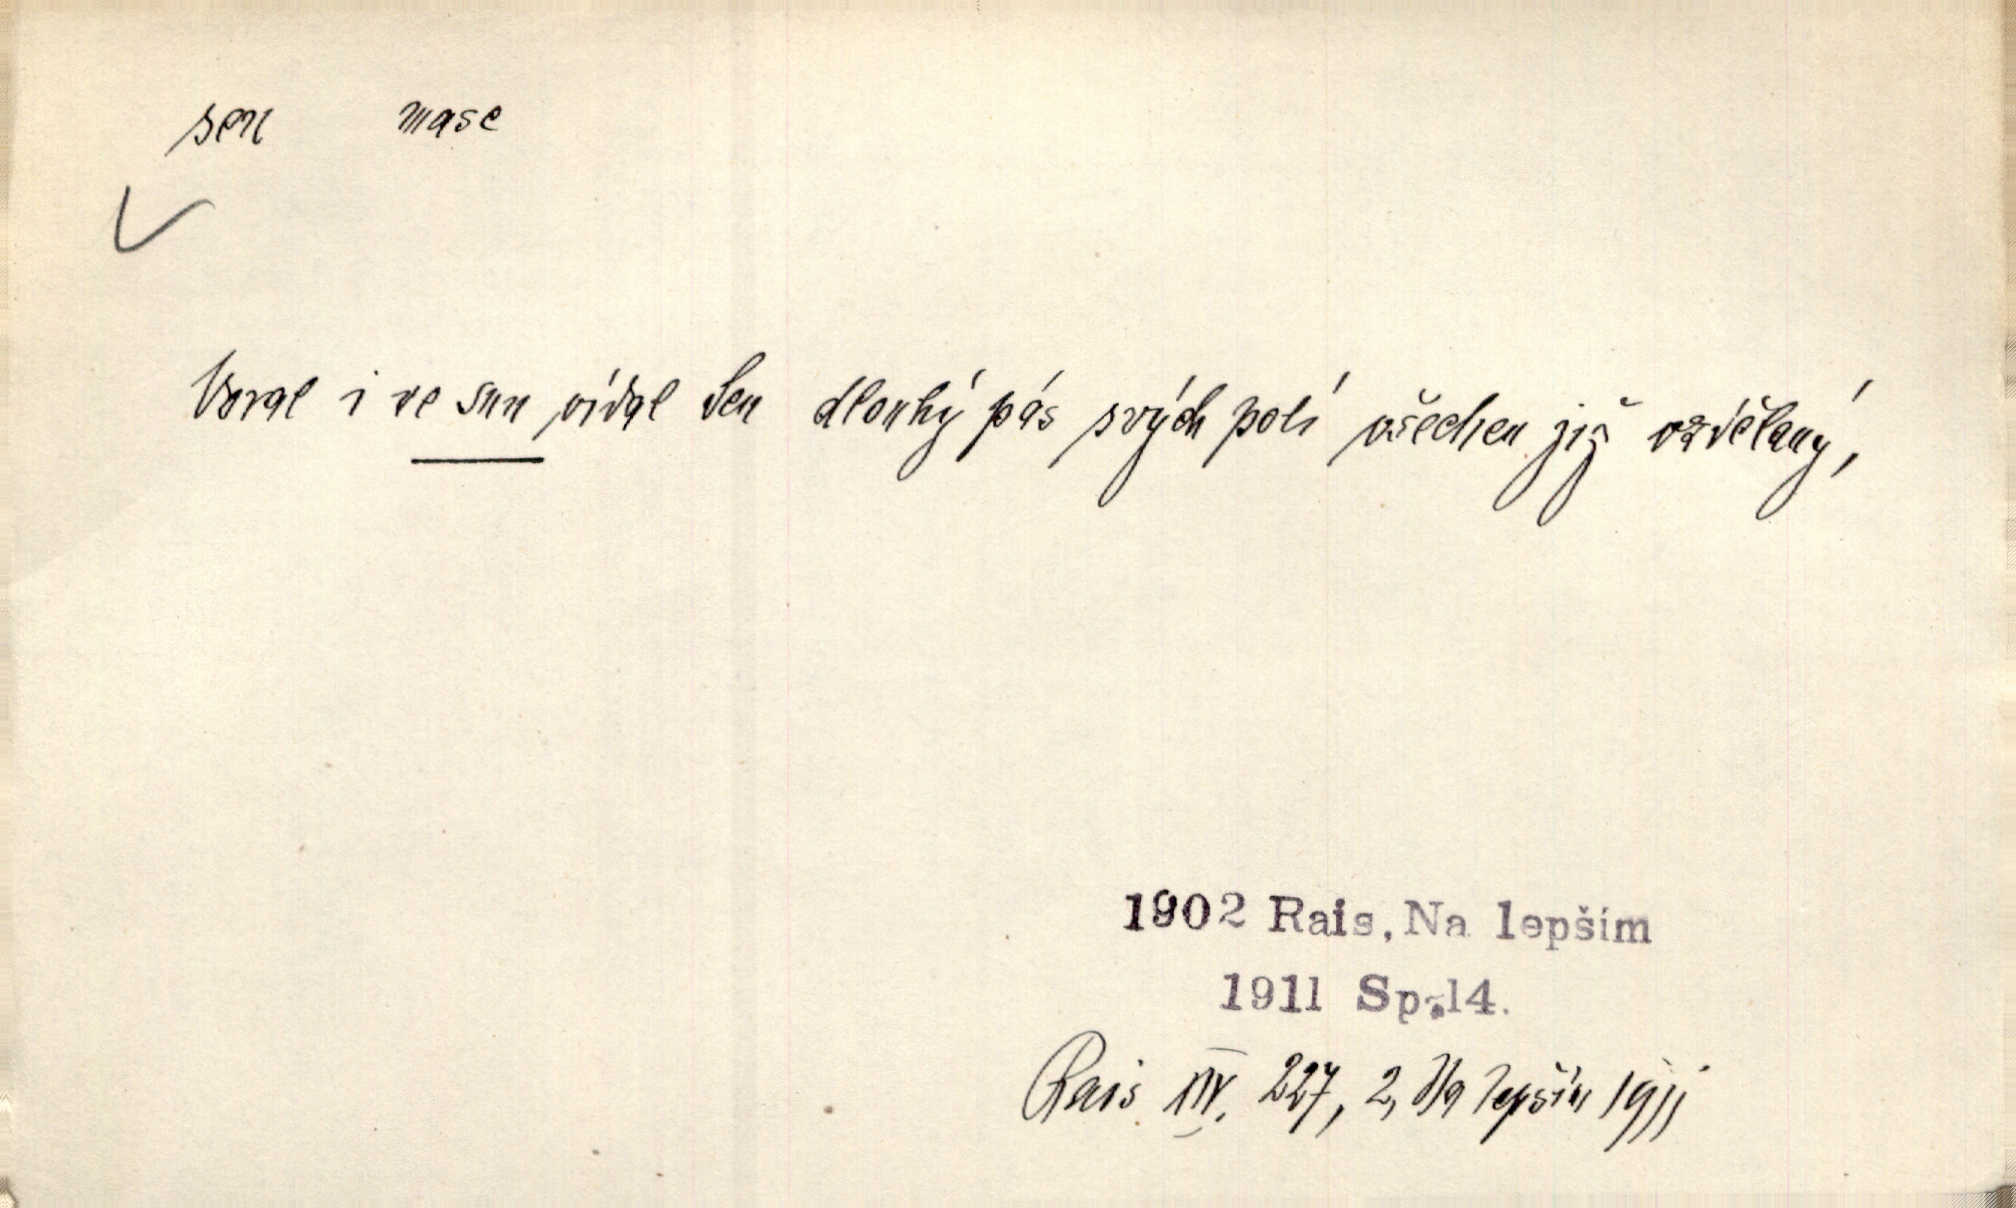 sen masc
Voral i ve snu vídal ten dlouhý pás svých polí všechen již vzdělaný,
1902 Rais, Na lepším
1911 Sp.14.
Rais XIV. 227, 2, Na lepším 1911